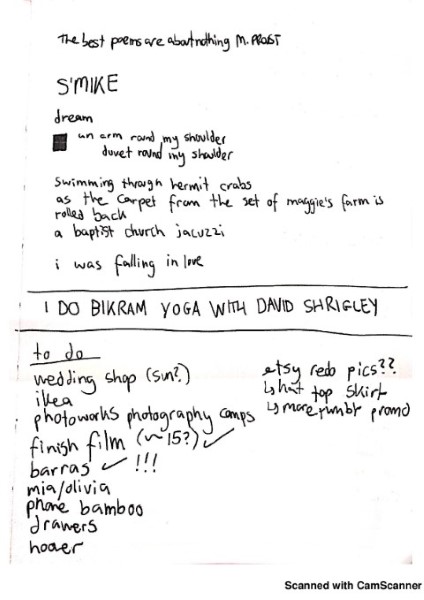 The best poems are about nothing M. PROST
S'MIKE
dream
an arm round my shoulder
duvet round my shoulder
swimming through hermit crabs
as the carpet from the set of maggie's farm is
rolled back
a baptist church jacuzzi
i was falling in love
I DO BIKRAM YOGA WITH DAVID SHRIGLEY
to do
wedding shop (sun?)
ikea
photoworks photography comps
finish film (~15?) ✓
barras ✓ !!!
mia/olivia
phone bamboo
drawers
hoover
etsy redo pics??
↳ hat top skirt
↳ more promo
Scanned with CamScanner